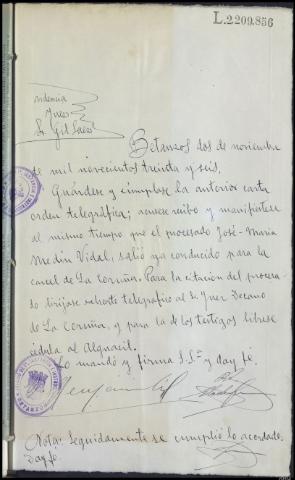 L.2209.856
ndencia
Juez
Sr. Gil Saez
Betanzos dos de noviembre
de mil novecientos treinta y seis.
Guárdese y cúmplase la anterior carta
orden telegráfica; acusese recibo y manifiestese
al mismo tiempo que el procesado José-Maria
Medin Vidal, salió ya conducido para la
carcel de La Coruña. Para la citación del procesa-
do dirijase exhorto telegrafico al Sr. Juez Decano
de La Coruña, y para la de los testigos librese
cédula al Alguacil.
Lo mandó y firma S.Sª y doy fé.
Nota: Seguidamente se cumplió lo acordado.
Doy fe.